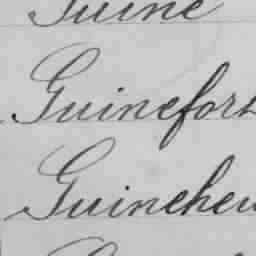 Guine
Guinefort
Guineheu